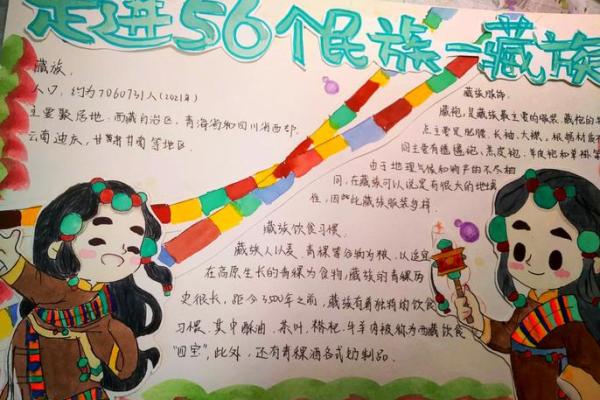 走进56个民族—藏族
藏族:
人口,约为7060731人(2021年)
主要聚居地:西藏自治区,青海省和四川省西部,
云南迪庆,甘肃甘南等地区.
藏族服饰.
藏袍,是藏族最主要的服装,藏袍的特
点主要是肥腰,长袖,大襟,根据材质不
同主要有氆氇袍,羔皮袍,羊皮袍和
由于地理气候和物产的不尽相
同,在藏族可以说是有很大的地域
性,因此藏族服装多样.
藏族饮食习惯.
藏族人以麦,青稞等谷物为粮,以适宜
在高原生长的青稞为食物,藏族的青稞历
史很长,距今3500年之前,藏族有着独特的饮食
习惯.其中酥油、茶叶、糌粑、牛羊肉被称为西藏饮食
"四宝",此外,还有青稞酒各式奶制品.